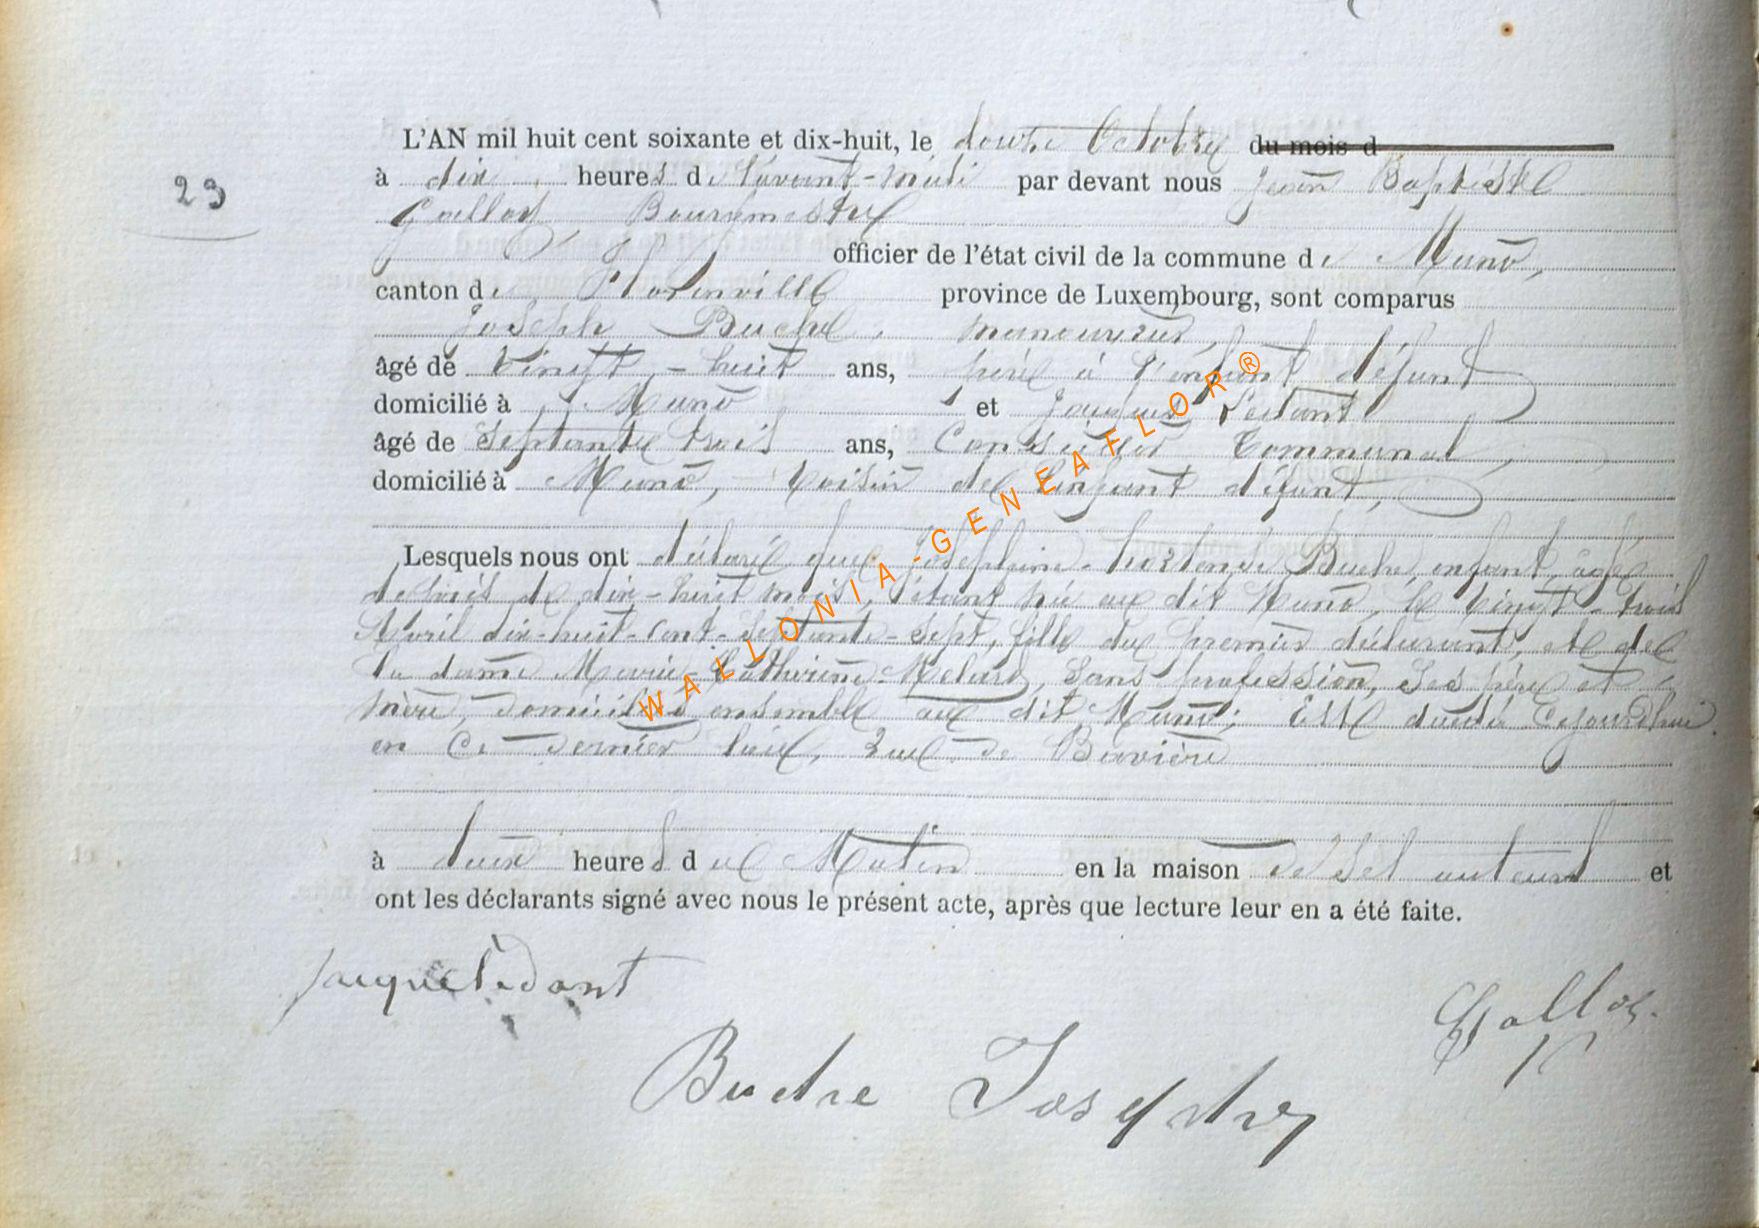 L'AN mil huit cent soixante et dix-huit, le douze Octobre du mois d
23
à dix heures de l'avant-midi par devant nous Jean Baptiste
Galloy Bourgmestre
officier de l'état civil de la commune de Muno,
canton de Florenville province de Luxembourg, sont comparus
Joseph Buche, manouvrier,
âgé de vingt-huit ans, père à l'enfant défunt
domicilié à Muno et Jacques Ledant
âgé de septante trois ans, Conseiller Communal,
domicilié à Muno, voisin de l'enfant défunt,
Lesquels nous ont déclaré que Joséphine-Hortense Buche, enfant, âgée
de dix-huit mois, étant née au dit Muno, le vingt-trois
Avril dix-huit-cent-septante-sept, fille du premier déclarant, et de
la dame Marie Catherine sans profession, ses père et
mère, domiciliés ensemble au dit Muno; Est décédée cejourd'hui
en ce dernier lieu, rue de Bavière
à deux heures du Matin en la maison de ses auteurs et
ont les déclarants signé avec nous le présent acte, après que lecture leur en a été faite.
Jacque Ledant
Galloy
Buche Joseph
WALLONIA-GENEAFLOR®